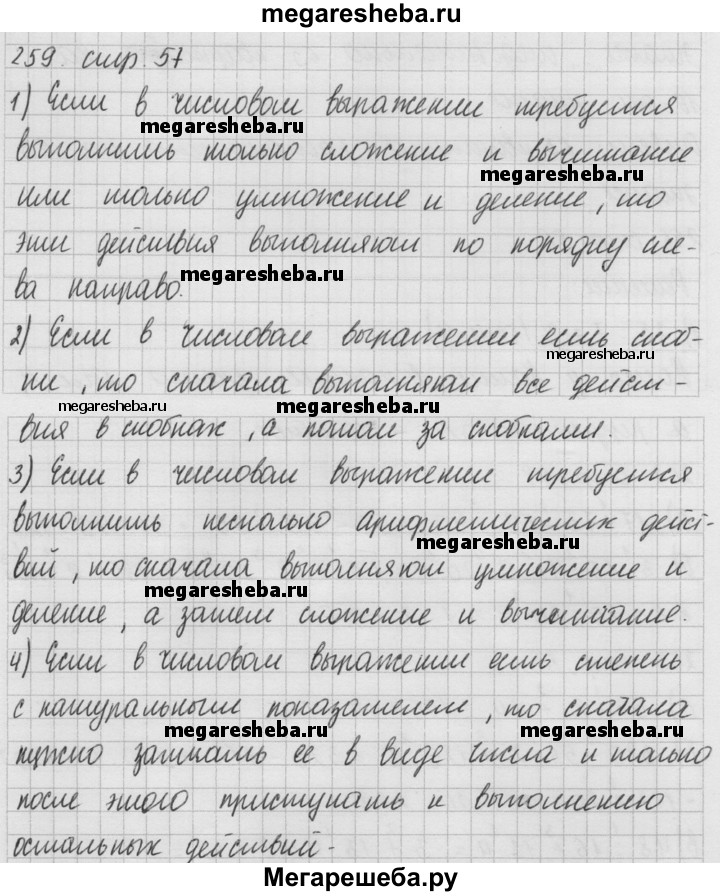 megaresheba.ru
259. стр. 57
1) Если в числовом выражении требуется
megaresheba.ru
выполнить только сложение и вычитание
megaresheba.ru
или только умножение и деление, то
эти действия выполняют по порядку сле-
megaresheba.ru
ва направо.
2) Если в числовом выражении есть скоб-
megaresheba.ru
ки, то сначала выполняют все дейст-
megaresheba.ru megaresheba.ru
вия в скобках, а потом за скобками.
3) Если в числовом выражении требуется
выполнить несколько арифметических дейст-
megaresheba.ru
вий, то сначала выполняют умножение и
megaresheba.ru
деление, а затем сложение и вычитание.
4) Если в числовом выражении есть степень
с натуральным показателем, то сначала
megaresheba.ru megaresheba.ru
нужно записать ее в виде числа и только
после этого приступать к выполнению
остальных действий.
Мегарешеба.ру